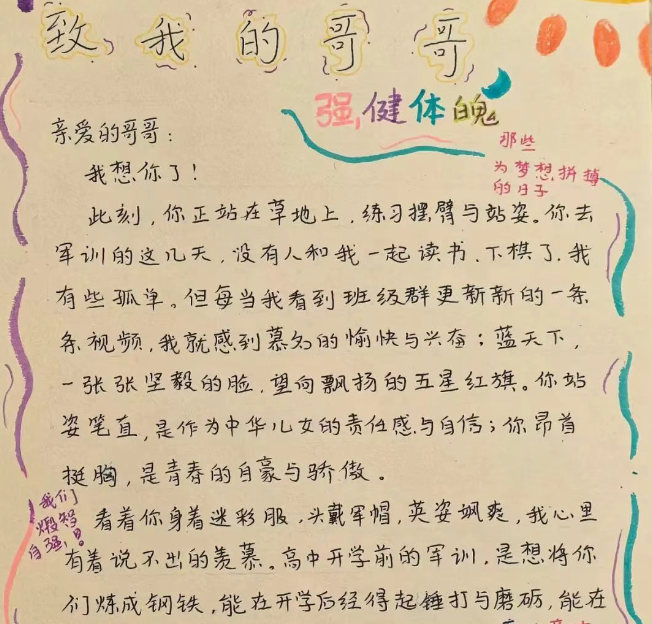 致我的哥哥
强健体魄
那些
为梦想拼搏
的日子
亲爱的哥哥：
我想你了！
此刻，你正站在草地上，练习摆臂与站姿。你去
军训的这几天，没有人和我一起读书、下棋了，我
有些孤单。但每当我看到班级群更新新的一条
条视频，我就感到莫名的愉快与兴奋；蓝天下，
一张张坚毅的脸，望向飘扬的五星红旗。你站
姿笔直，是作为中华儿女的责任感与自信；你昂首
挺胸，是青春的自豪与骄傲。
我们
自强！
看着你身着迷彩服，头戴军帽，英姿飒爽，我心里
有着说不出的羡慕。高中开学前的军训，是想将你
们炼成钢铁，能在开学后经得起锤打与磨砺，能在